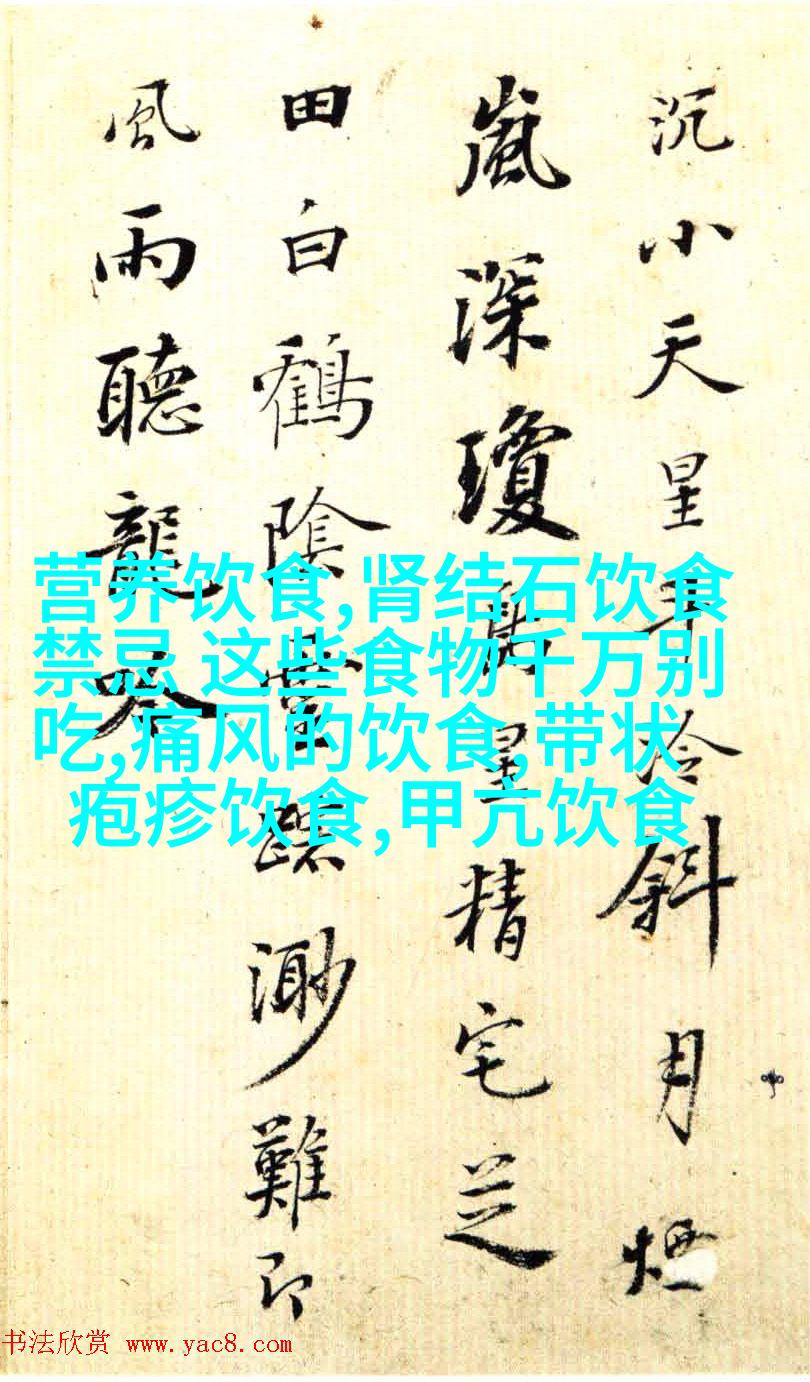 沉小天星冷斜月煙
嵐深瓊星精宅芝
田白鶴陰渺難即
風雨聽龍吟
营养饮食,肾结石饮食
禁忌 这些食物千万别
吃,痛风的饮食,带状
疱疹饮食,甲亢饮食
书法欣赏 www.yac8.com